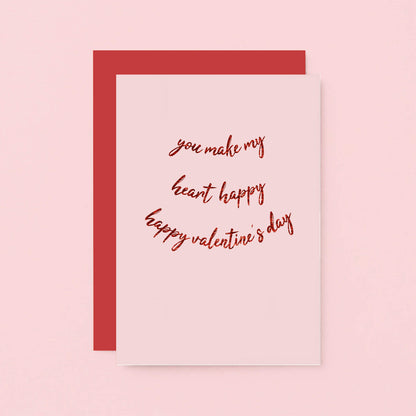 you make my
heart happy
happy valentine's day